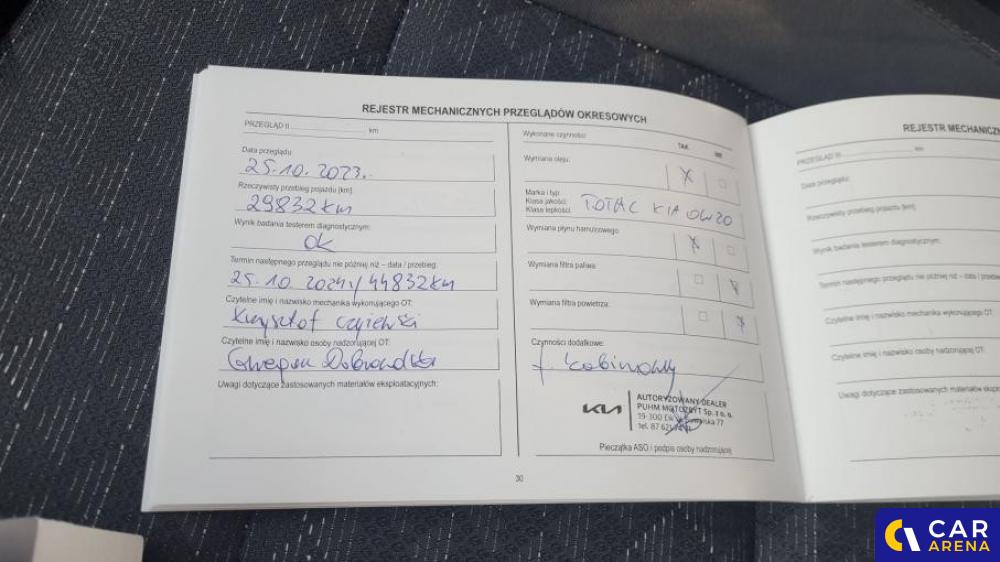 REJESTR MECHANICZNYCH PRZEGLĄDÓW OKRESOWYCH
PRZEGLĄD ti ........................ km
Data przeglądu
25.10.2023.
Rzeczywisty przebieg pojazdu [km]
29832km
Wynik badania testerem diagnostycznym:
OK
Termin następnego przeglądu nie później niż – data / przebieg:
25.10 2024r/44832km
Czytelne imię i nazwisko mechanika wykonującego OT:
Krzysztof
Czytelne imię i nazwisko osoby nadzorującej OT:
Uwagi dotyczące zastosowanych materiałów eksploatacyjnych:
Wykonane czynności:
TAK NIE
Wymiana oleju:
X
Marka i typ:
Klasa jakości:
Klasa lepkości:
TOTAL KIA 0W20
Wymiana płynu hamulcowego
X
Wymiana filtra paliwa:
Wymiana filtra powietrza:
Czynności dodatkowe:
f. kabinowy
KIA
AUTORYZOWANY DEALER
PUHM MOTOZBYT Sp. z o. o.
19-300 77
tel. 87 621
Pieczątka ASO i podpis osoby nadzorującej
30
REJESTR MECHANICZN
PRZEGLĄD ti ........................ km
Data przeglądu:
Rzeczywisty przebieg pojazdu [km]:
Wynik badania testerem diagnostycznym:
Termin następnego przeglądu nie później niż – data / przebieg
Czytelne imię i nazwisko mechanika wykonującego OT:
Czytelne imię i nazwisko osoby nadzorującej OT:
Uwagi dotyczące zastosowanych materiałów eksp
CAR
ARENA